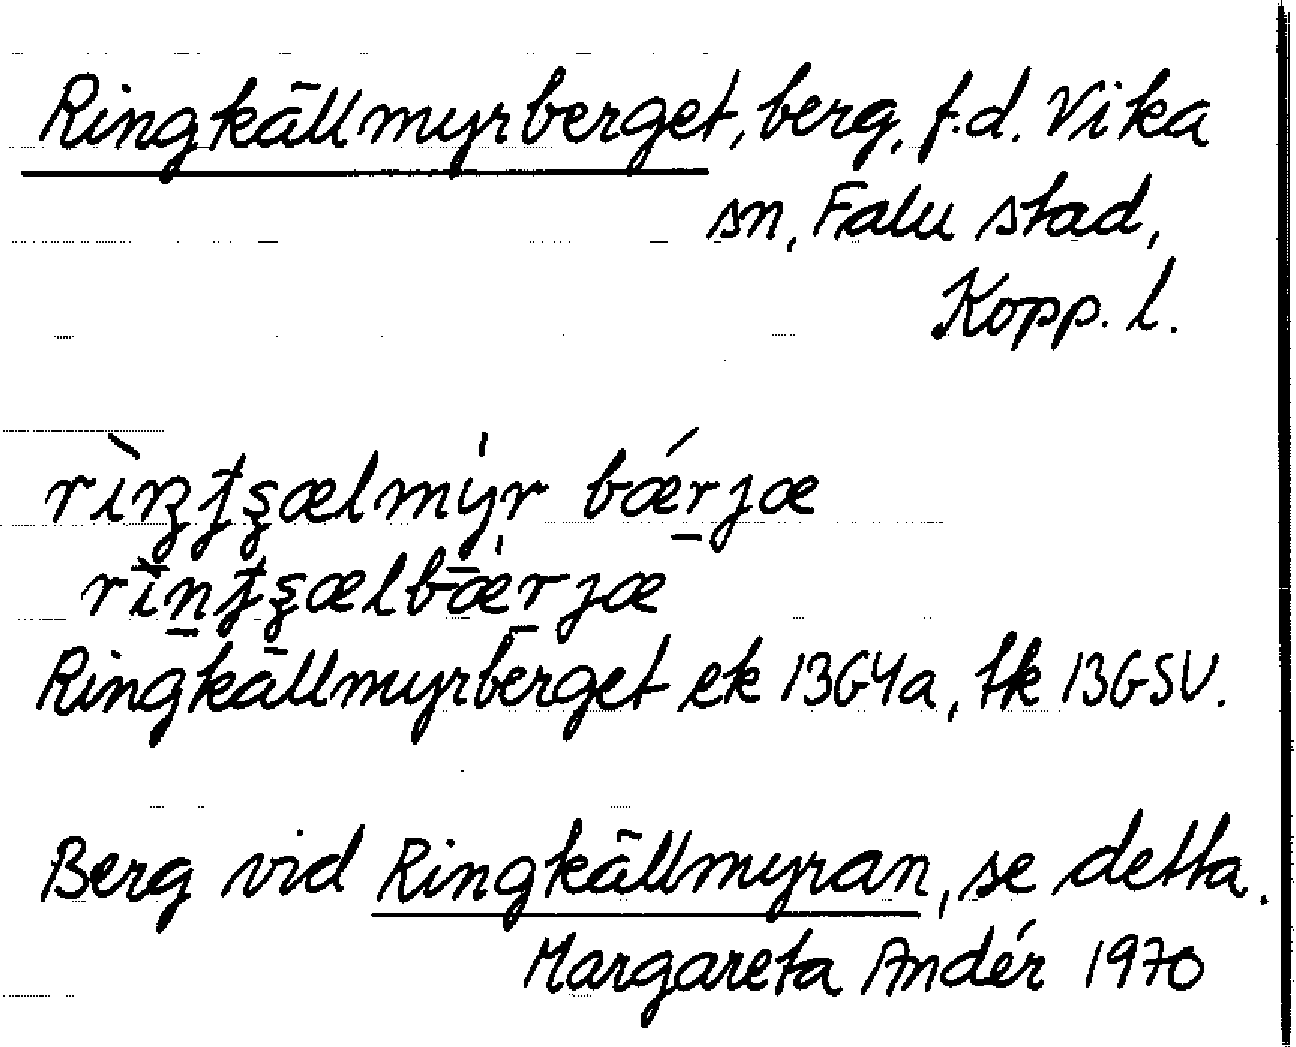 Ringkällmyrberget, berg, f.d. Vika
sn, Falu stad,
Kopp. l.
bǽrȷæ
Ringkällmyrberget ek 13G4a, tk 13GSV.
Berg vid Ringkällmyran, se detta.
Margareta Andér 1970